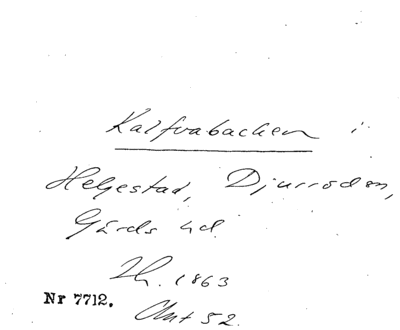 Kalfvabacken i
Helgestad, Djurröden,
Gärds hd.
Th. 1863
Nr 7712.
52.